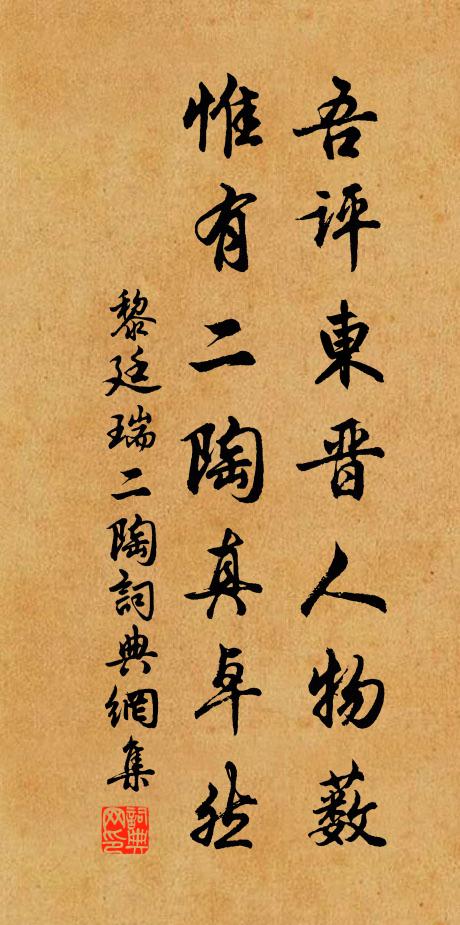 吾評東晋人物藪
惟有二陶真卓然
黎廷瑞二陶詞典網集
詞典网印